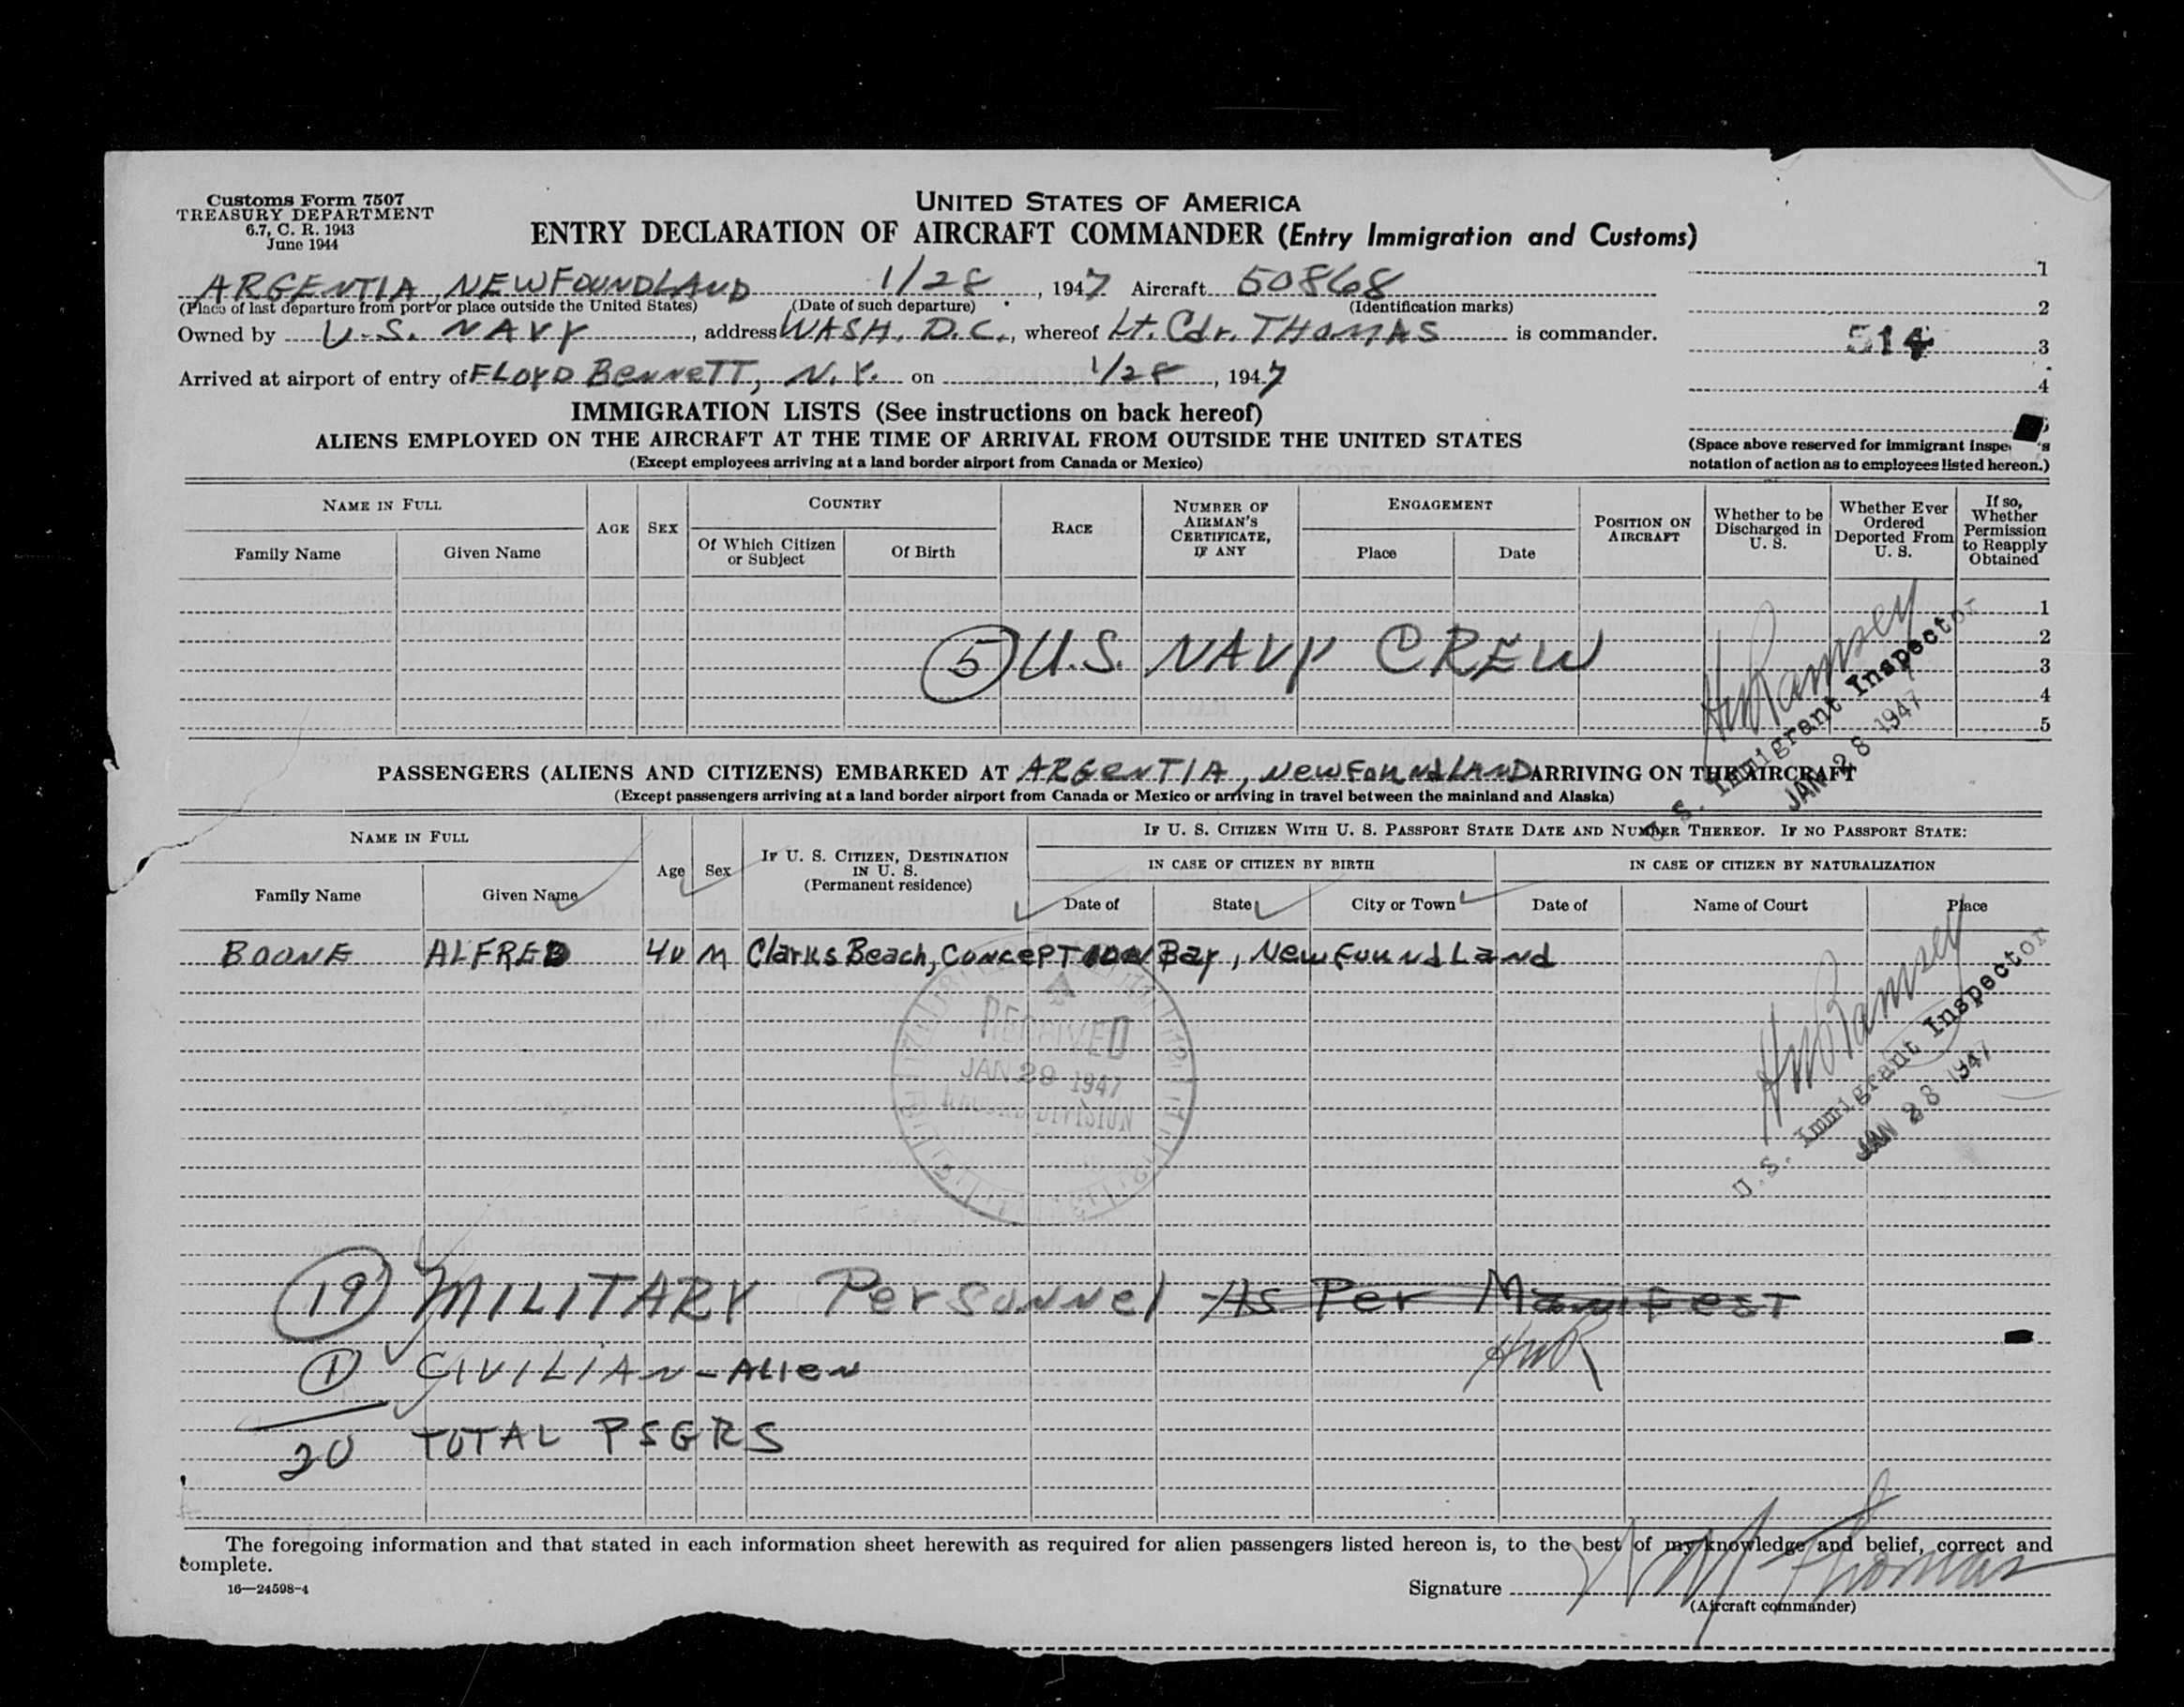 Customs Form 7507
TREASURY DEPARTMENT
6.7, C. R. 1943
June 1944
UNITED STATES OF AMERICA
ENTRY DECLARATION OF AIRCRAFT COMMANDER (Entry Immigration and Customs)
ARGENTIA, NEWFOUNDLAND 1/28, 1947 Aircraft 50868
(Place of last departure from port or place outside the United States) (Date of such departure) (Identification marks)
Owned by U.S. NAVY, address WASH. D.C., whereof Lt. Cdr. THOMAS is commander.
Arrived at airport of entry of FLOYD BENNETT, N.Y. on 1/28, 1947
1
2
514 3
4
IMMIGRATION LISTS (See instructions on back hereof)
ALIENS EMPLOYED ON THE AIRCRAFT AT THE TIME OF ARRIVAL FROM OUTSIDE THE UNITED STATES
(Except employees arriving at a land border airport from Canada or Mexico)
(Space above reserved for immigrant
notation of action as to employees listed hereon.)
NAME IN FULL
Family Name Given Name
AGE
SEX
COUNTRY
Of Which Citizen or Subject
Of Birth
RACE
NUMBER OF AIRMAN'S CERTIFICATE, IF ANY
ENGAGEMENT
Place Date
POSITION ON AIRCRAFT
Whether to be Discharged in U. S.
Whether Ever Ordered Deported From U. S.
If so, Whether Permission to Reapply Obtained
1
2
5 U.S. NAVY CREW 3
4
5
HWRamsey
U. S. Immigrant Inspector
JAN 28 1947
PASSENGERS (ALIENS AND CITIZENS) EMBARKED AT ARGENTIA, NEWFOUNDLAND ARRIVING ON THE AIRCRAFT
(Except passengers arriving at a land border airport from Canada or Mexico or arriving in travel between the mainland and Alaska)
NAME IN FULL
Family Name Given Name
Age
Sex
IF U. S. CITIZEN, DESTINATION IN U. S.
(Permanent residence)
IF U. S. CITIZEN WITH U. S. PASSPORT STATE DATE AND NUMBER THEREOF. IF NO PASSPORT STATE:
IN CASE OF CITIZEN BY BIRTH
Date of State City or Town
IN CASE OF CITIZEN BY NATURALIZATION
Date of Name of Court Place
BOONE ALFRED 40 M Clarks Beach, Conception Bay, Newfoundland
RECEIVED
JAN 29 1947
DIVISION
HWRamsey
U.S. Immigrant Inspector
JAN 28 1947
19 MILITARY Personnel As Per Manifest
HWR
1 CIVILIAN - Alien
20 TOTAL PSGRS
The foregoing information and that stated in each information sheet herewith as required for alien passengers listed hereon is, to the best of my knowledge and belief, correct and
complete.
16—24598-4
Signature Thomas
(Aircraft commander)